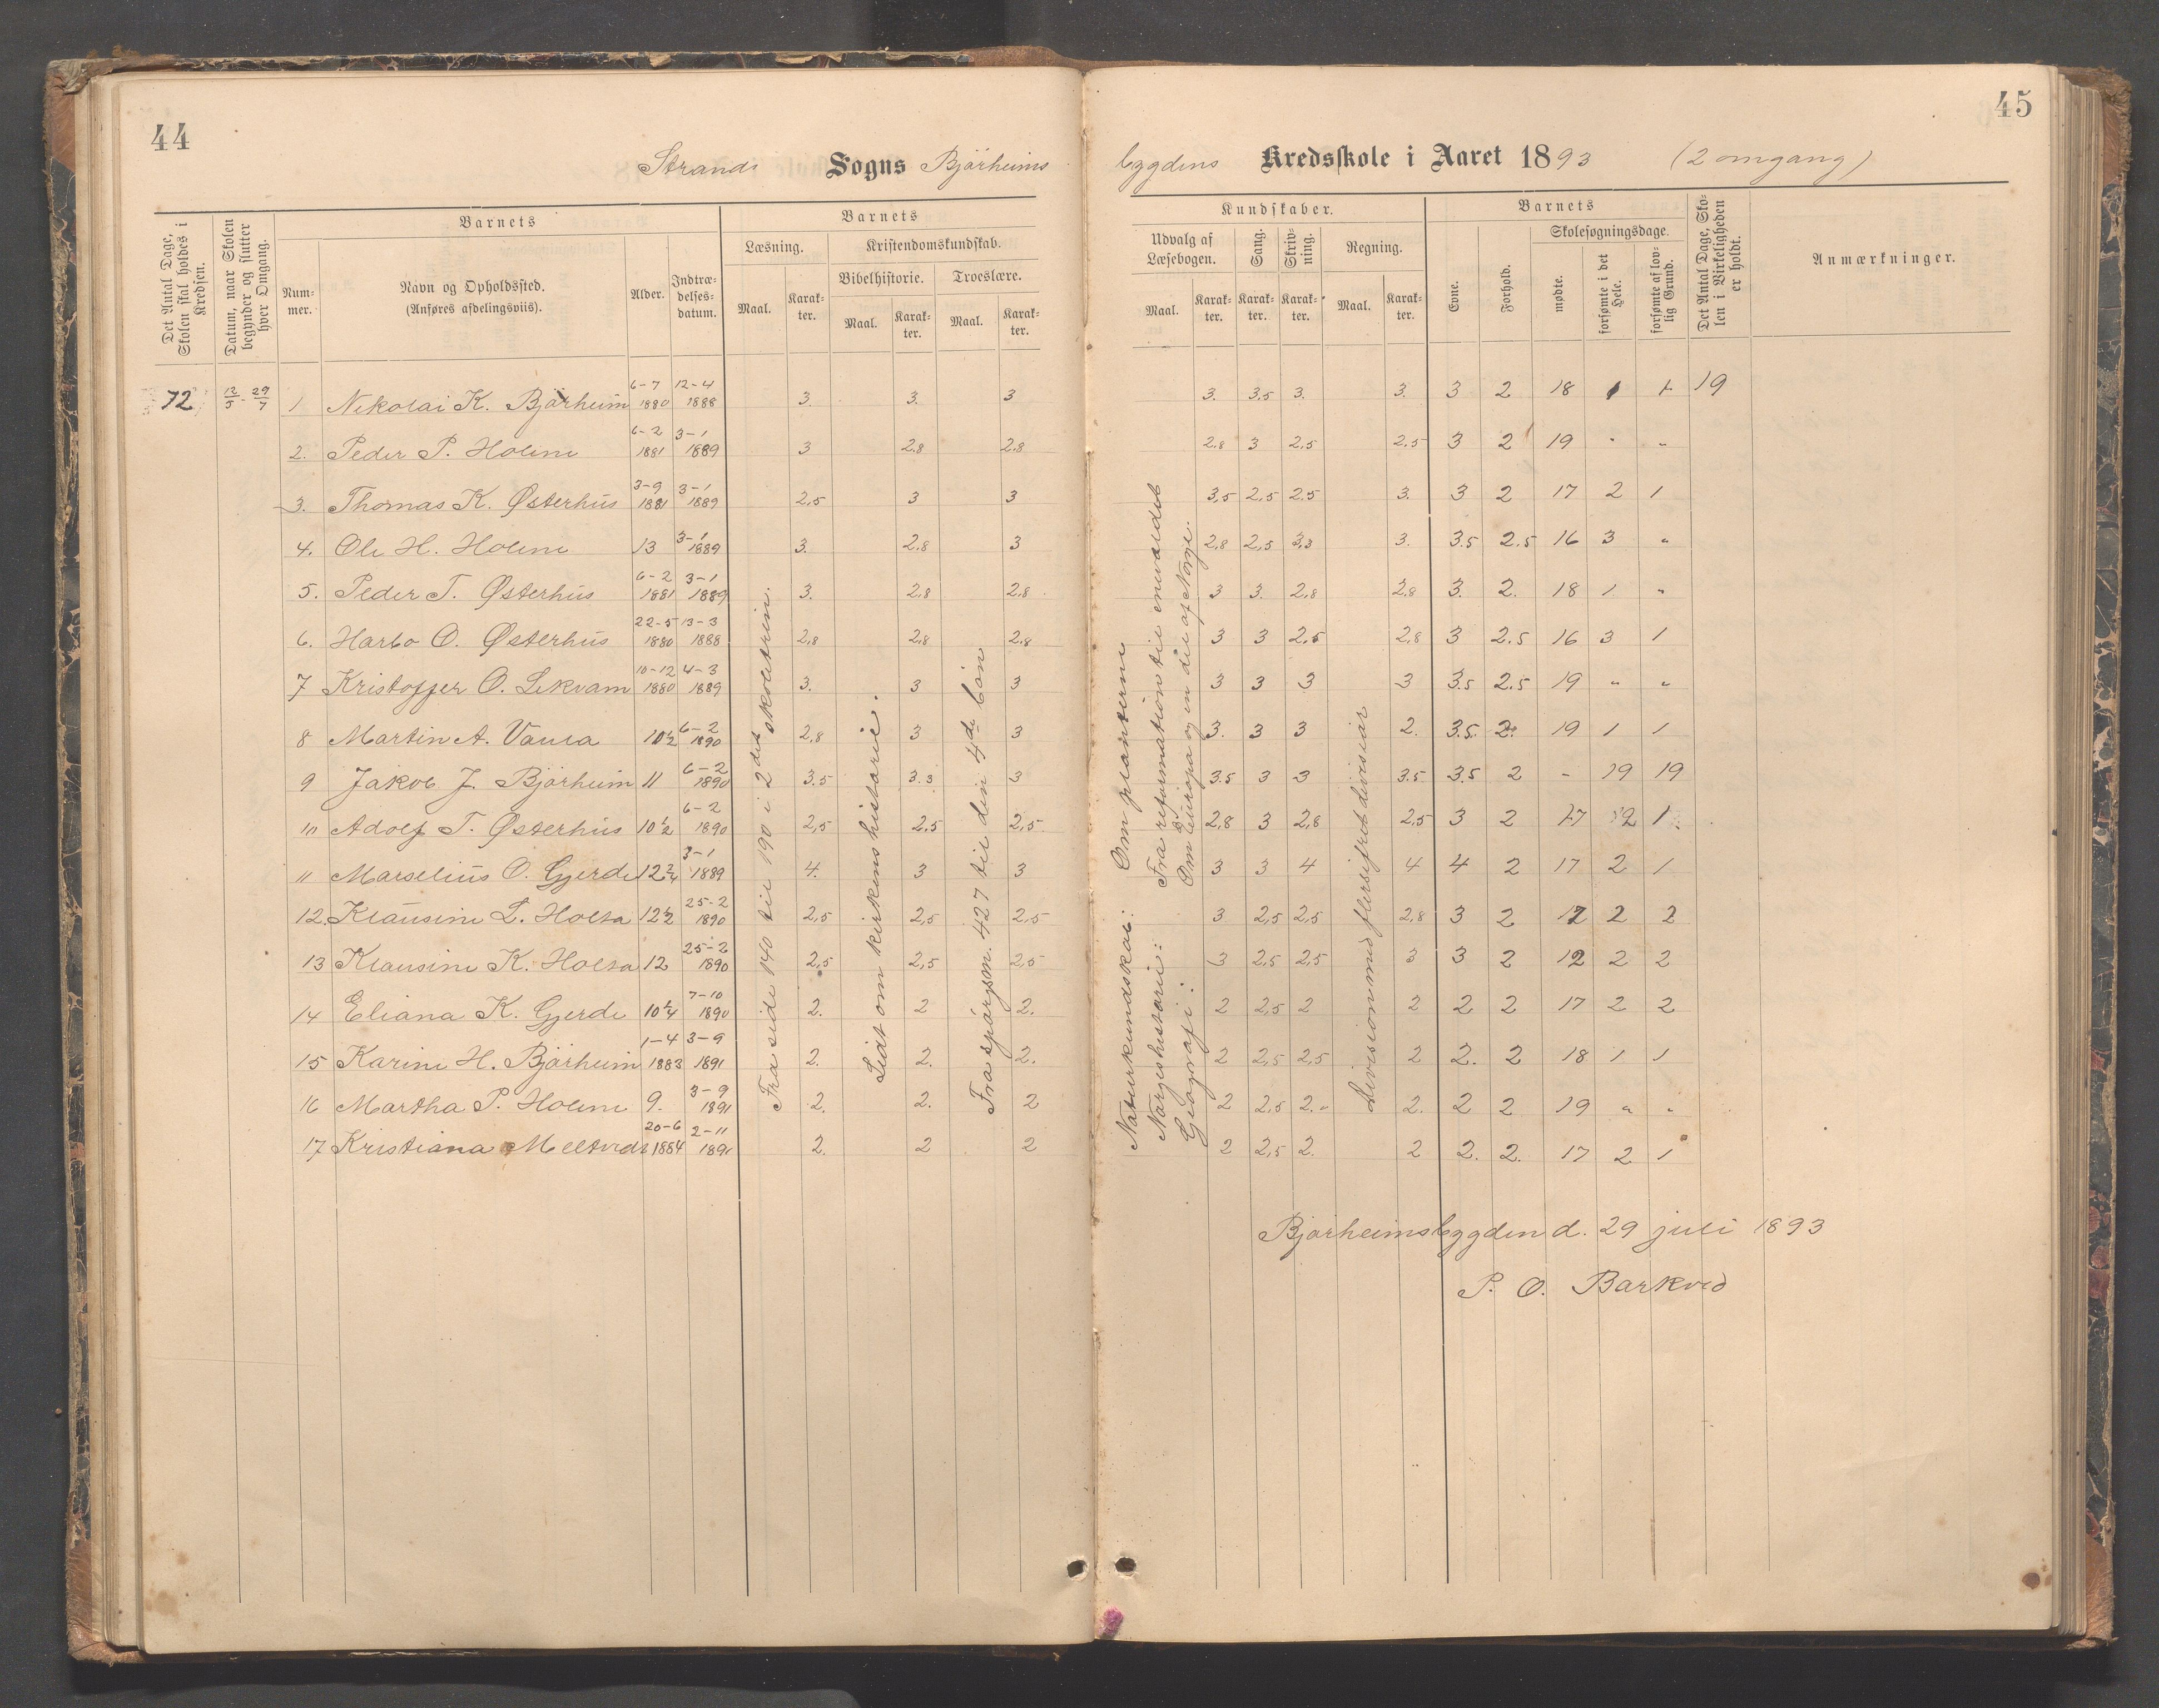 44
Strands Sogns Bjårheims
Det Antal Dage, Skolen skal holdes i Kredsen.
Datum, naar Skolen begynder og slutter hver Omgang.
Barnets
Nummer.
Navn og Opholdssted.
(Anføres afdelingsviis).
Alder.
Indtrædelsesdatum.
Barnets
Læsning.
Kristendomskundskab.
Bibelhistorie.
Troeslære.
Maal.
Karakter.
Maal.
Karakter.
Maal.
Karakter.
72 12/5 - 29/7 1 Nikolai K. Bjårheim 6-7 1880 12-4 1888 3. 3. 3
2. Peder P. Holene 6-2 1881 3-1 1889 3 2.8 2.8
3. Thomas K. Østerhus 3-9 1881 3-1 1889 2,5 3 3
4. Ole H. Holene 13 3-1 1889 3. 2.8 3
5. Peder T. Østerhus 6-2 1881 3-1 1889 3. 2.8 2.8
6. Harbo O. Østerhus 22-5 1880 13-3 1888 2,8 2,8 2.8
7 Kristoffer O. Lekvam 10-12 1880 4-3 1889 3. 3 3
8 Martin A. Vaula 10 1/2 6-2 1890 2,8 3 3
9 Jakob J. Bjårheim 11 6-2 1890 3.5 3.3 3
10 Adolf T. Østerhus 10 1/2 6-2 1890 2,5 2,5 2,5
11 Marselius O. Gjerde 12 3/4 3-1 1889 4. 3 3
12. Klausine L. Holta 12 1/2 25-2 1890 2,5 2,5 2,5
13 Klausine K. Holta 12 25-2 1890 2,5 2,5 2,5
14 Eliana K. Gjerde 10 1/4 7-10 1890 2. 2 2.
15 Karine H. Bjårheim 1-4 1883 3-9 1891 2. 2. 2.
16 Martha P. Holene 9. 3-9 1891 2. 2. 2
17 Kristiana Meltveds 20-6 1884 2-11 1891 2. 2 2
Fra side 140 til 190 i 2det skoletrin.
Lidt om kirkens historie.
Fra spårgsm. 427 til den 4de bön
45
bygdens Kredsskole i Aaret 1893 (2 omgang)
Kundskaber.
Udvalg af Læsebogen.
Sang.
Skrivning.
Regning.
Maal.
Karakter.
Karakter.
Karakter.
Maal.
Karakter.
Barnets
Evne.
Forhold.
Skolesøgningsdage.
mødte.
forsømte i det Hele.
forsømte af lovlig Grund.
Det Antal Dage, Skolen i Virkeligheden er holdt.
Anmærkninger.
3. 3,5 3. 3. 3 2 18 1 1 19
2.8 3 2,5 2,5 3 2 19 " "
3,5 2,5 2.5 3. 3 2 17 2 1
2,8 2,5 3,3 3. 3.5 2.5 16 3 "
3 3. 2,8 2.8 3. 2. 18 1 "
3 3 2.5 2,8 3 2.5 16 3 1
3 3 3 3 3.5 2.5 19 " "
3. 3 3 2. 3.5. 2. 19 1 1
3.5 3 3 3.5 3.5 2 - 19 19
2,8 3 2,8 2,5 3 2 17 2 1
3 3 4 4 4 2 17 2 1
3 2,5 2,5 2,8 3 2 17 2 2
3 2.5 2,5 3 3 2 12 2 2
2 2,5 2 2 2 2 17 2 2
2 2,5 2,5 2 2. 2 18 1 1
2 2,5 2. 2. 2 2 19 " "
2 2,5 2. 2 2. 2. 17 2 1
Naturkundskab: Om planterne
Norgeshistorie: Fra reformationen til enevældet
Geografi: Om Europa og en del af Norge.
Division med flersifret divisior
Bjårheimsbygden d. 29 juli 1893
P. O. Barkved